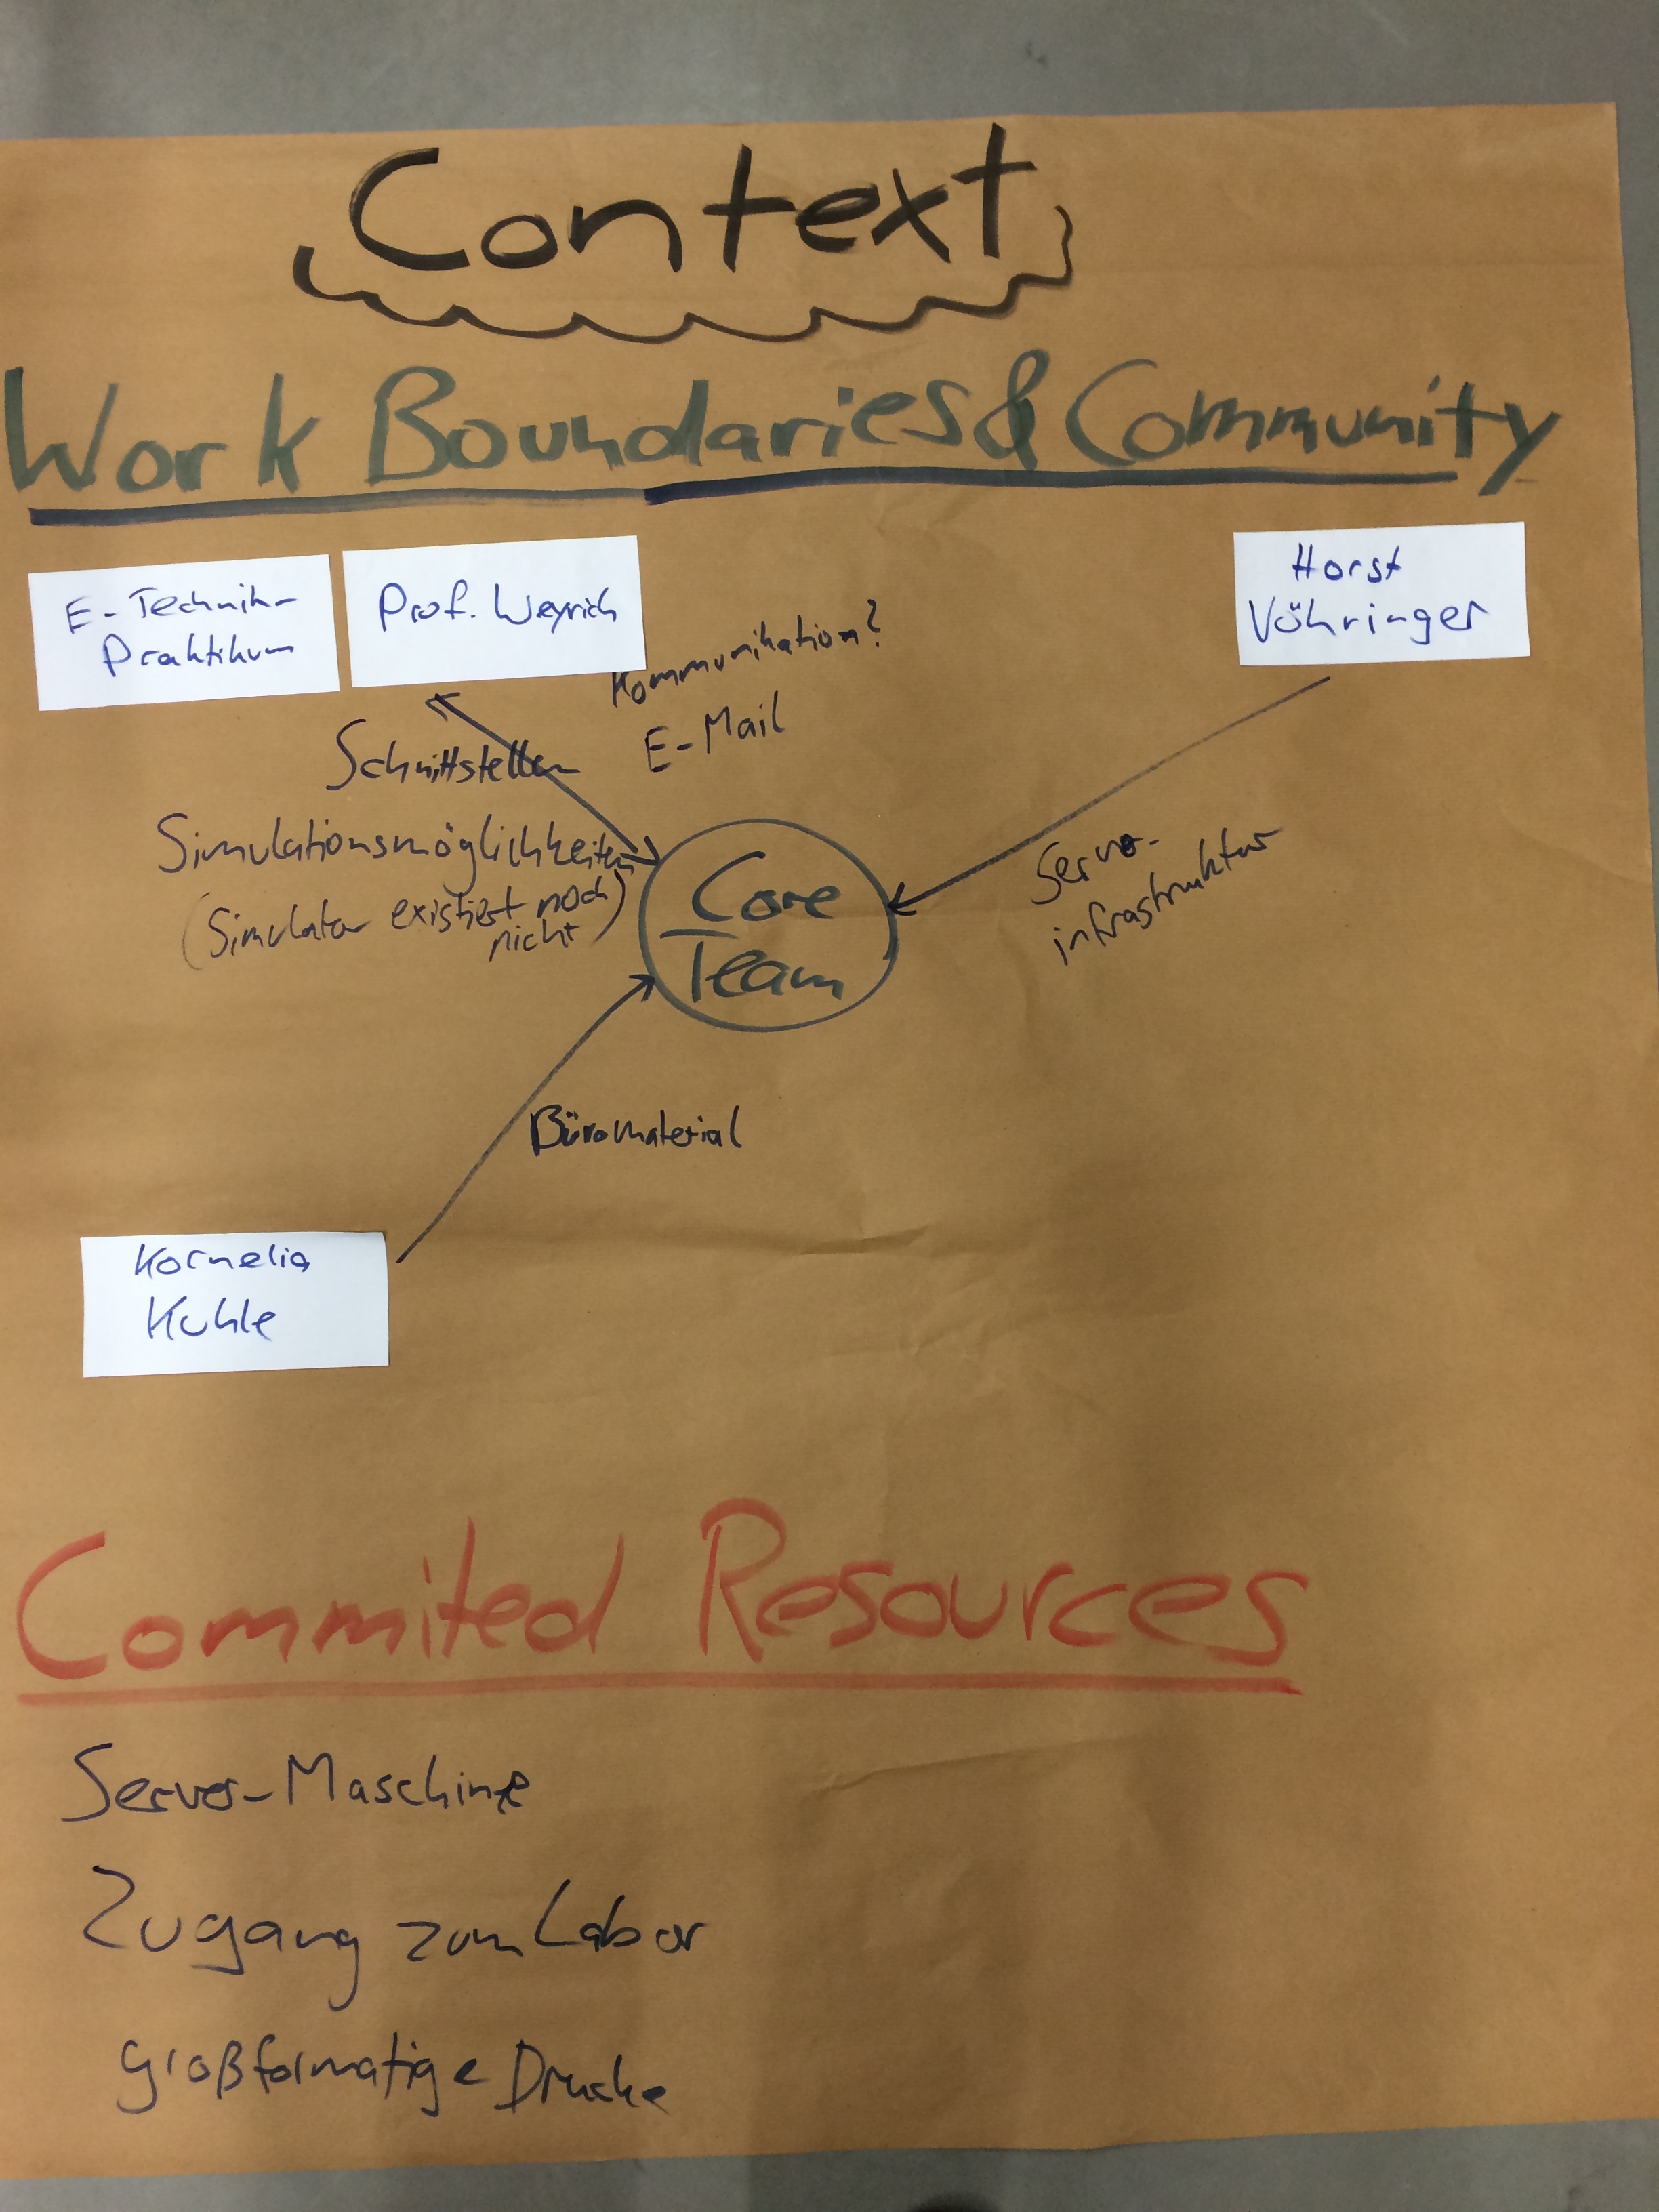 Context
Work Boundaries & Community
E-Technik-
Praktikum
Prof. Weyrich
Horst
Vöhringer
Kommunikation?
E-Mail
Schnittstellen
Simulationsmöglichkeiten
(Simulator existiert noch
nicht)
Core
Team
Server-
infrastruktur
Büromaterial
Kornelia
Kuhle
Commited Resources
Server-Maschine
Zugang zum Labor
großformatige Drucke